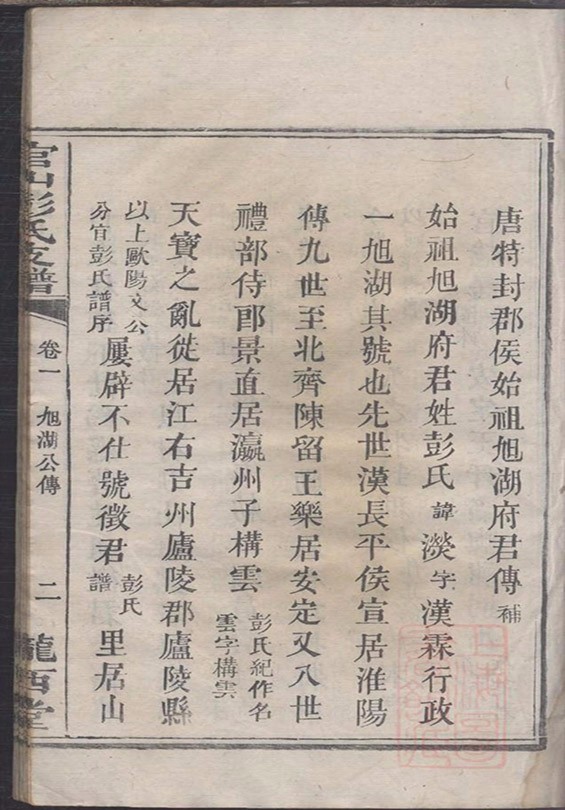 唐特封郡侯始祖旭湖府君傳補
始祖旭湖府君姓彭氏諱濙字漢霖行政
一旭湖其號也先世漢長平侯宣居淮陽
傳九世至北齊陳留王樂居安定又八世
禮部侍郎景直居瀛州子構雲彭氏紀作名
雲字構雲
天寶之亂徙居江右吉州廬陵郡廬陵縣
以上歐陽文公
分宜彭氏譜序屢辟不仕號徵君彭氏
譜里居山
官山彭氏支譜
卷一
旭湖公傳
二
隴西堂